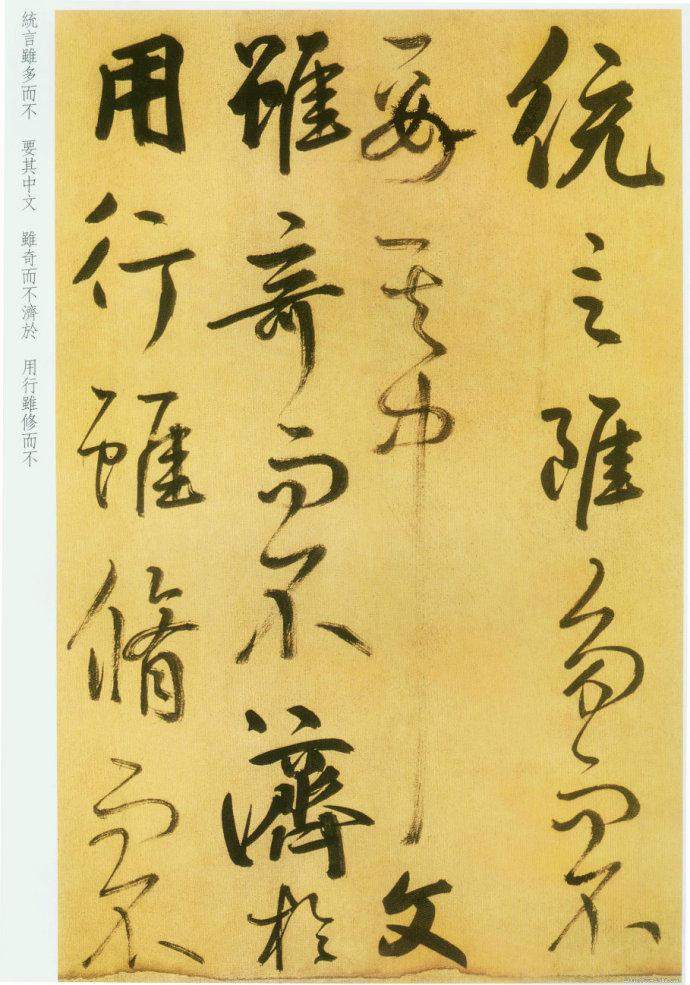 統言雖多而不
要其中文
雖奇而不濟於
用行雖脩而不
統言雖多而不　要其中文　雖奇而不濟於　用行雖修而不